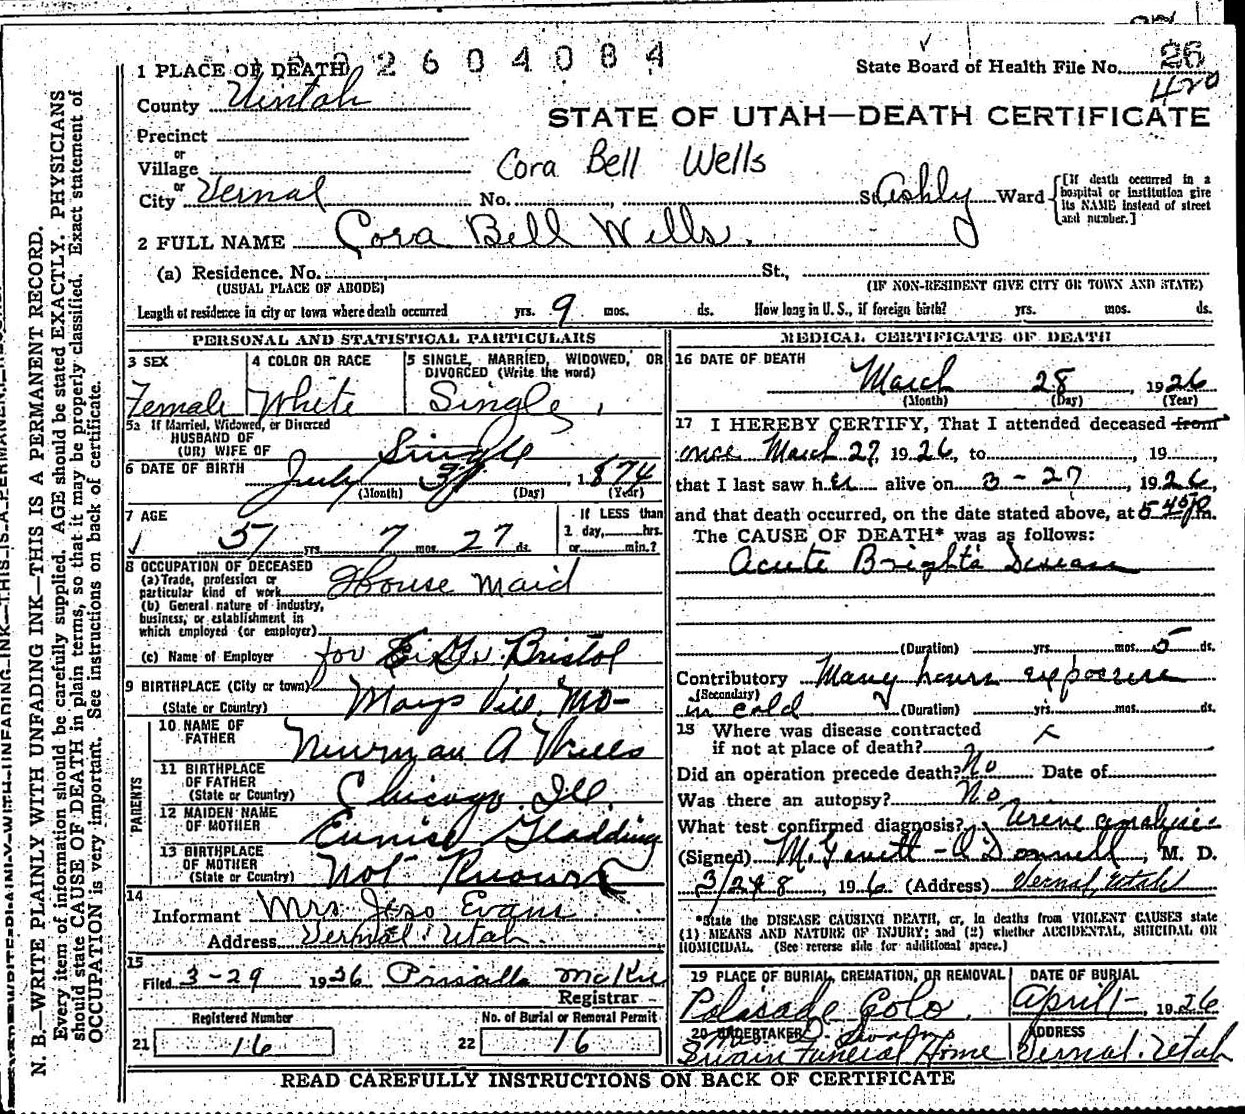 2604084
1 PLACE OF DEATH
State Board of Health File No. 26
420
County Uintah
STATE OF UTAH—DEATH CERTIFICATE
Precinct
or
Village
Cora Bell Wells
or
City Vernal No. , St, Ashly Ward
[If death occurred in a hospital or institution give its NAME instead of street and number.]
2 FULL NAME Cora Bell Wells.
(a) Residence. No. St.,
(USUAL PLACE OF ABODE) (IF NON-RESIDENT GIVE CITY OR TOWN AND STATE)
Length of residence in city or town where death occurred yrs. 9 mos. ds. How long in U. S., if foreign birth? yrs. mos. ds.
PERSONAL AND STATISTICAL PARTICULARS
3 SEX 4 COLOR OR RACE 5 SINGLE, MARRIED, WIDOWED, OR
DIVORCED (Write the word)
Female White Single
5a If Married, Widowed, or Divorced
HUSBAND OF
(OR) WIFE OF Single
6 DATE OF BIRTH July 31, 1874
(Month) (Day) (Year)
7 AGE If LESS than
51 yrs. 7 mos. 27 ds. 1 day, hrs.
or min.?
8 OCCUPATION OF DECEASED
(a) Trade, profession or
particular kind of work House Maid
(b) General nature of industry,
business, or establishment in
which employed (or employer)
(c) Name of Employer for Bristol
9 BIRTHPLACE (City or town)
(State or Country) Marys Vill, Mo-
PARENTS
10 NAME OF
FATHER Newman A Wells
11 BIRTHPLACE
OF FATHER
(State or Country) Chicago. Ill.
12 MAIDEN NAME
OF MOTHER Eunise Gladding
13 BIRTHPLACE
OF MOTHER
(State or Country) Not Known
14
Informant Mrs Evans
Address Vernal. Utah
15
Filed 3-29 1926 Prissilla McKee
Registrar
Registered Number No. of Burial or Removal Permit
21 16 22 16
MEDICAL CERTIFICATE OF DEATH
16 DATE OF DEATH
March 28, 1926
(Month) (Day) (Year)
17 I HEREBY CERTIFY, That I attended deceased from
once March 27, 1926, to , 19 ,
that I last saw h er alive on 3-27, 1926,
and that death occurred, on the date stated above, at 5 45 p m.
The CAUSE OF DEATH* was as follows:
Acute Brights Disease
(Duration) yrs. mos. 5 ds.
Contributory Many hours exposure
(Secondary)
in cold (Duration) yrs. mos. ds.
18 Where was disease contracted
if not at place of death? x
Did an operation precede death? No Date of
Was there an autopsy? No
What test confirmed diagnosis? Urine analysis
(Signed) O'Donnell, M. D.
3/28, 1926 (Address) Vernal, Utah
*State the DISEASE CAUSING DEATH, or, in deaths from VIOLENT CAUSES state
(1) MEANS AND NATURE OF INJURY; and (2) whether ACCIDENTAL, SUICIDAL OR
HOMICIDAL. (See reverse side for additional space.)
19 PLACE OF BURIAL, CREMATION, OR REMOVAL DATE OF BURIAL
Palisade Colo. April 1- 1926
20 UNDERTAKER ADDRESS
Swain Funeral Home Vernal. Utah
READ CAREFULLY INSTRUCTIONS ON BACK OF CERTIFICATE
N. B.—WRITE PLAINLY WITH UNFADING INK—THIS IS A PERMANENT RECORD.
Every item of information should be carefully supplied. AGE should be stated EXACTLY. PHYSICIANS
should state CAUSE OF DEATH in plain terms, so that it may be properly classified. Exact statement of
OCCUPATION is very important. See instructions on back of certificate.